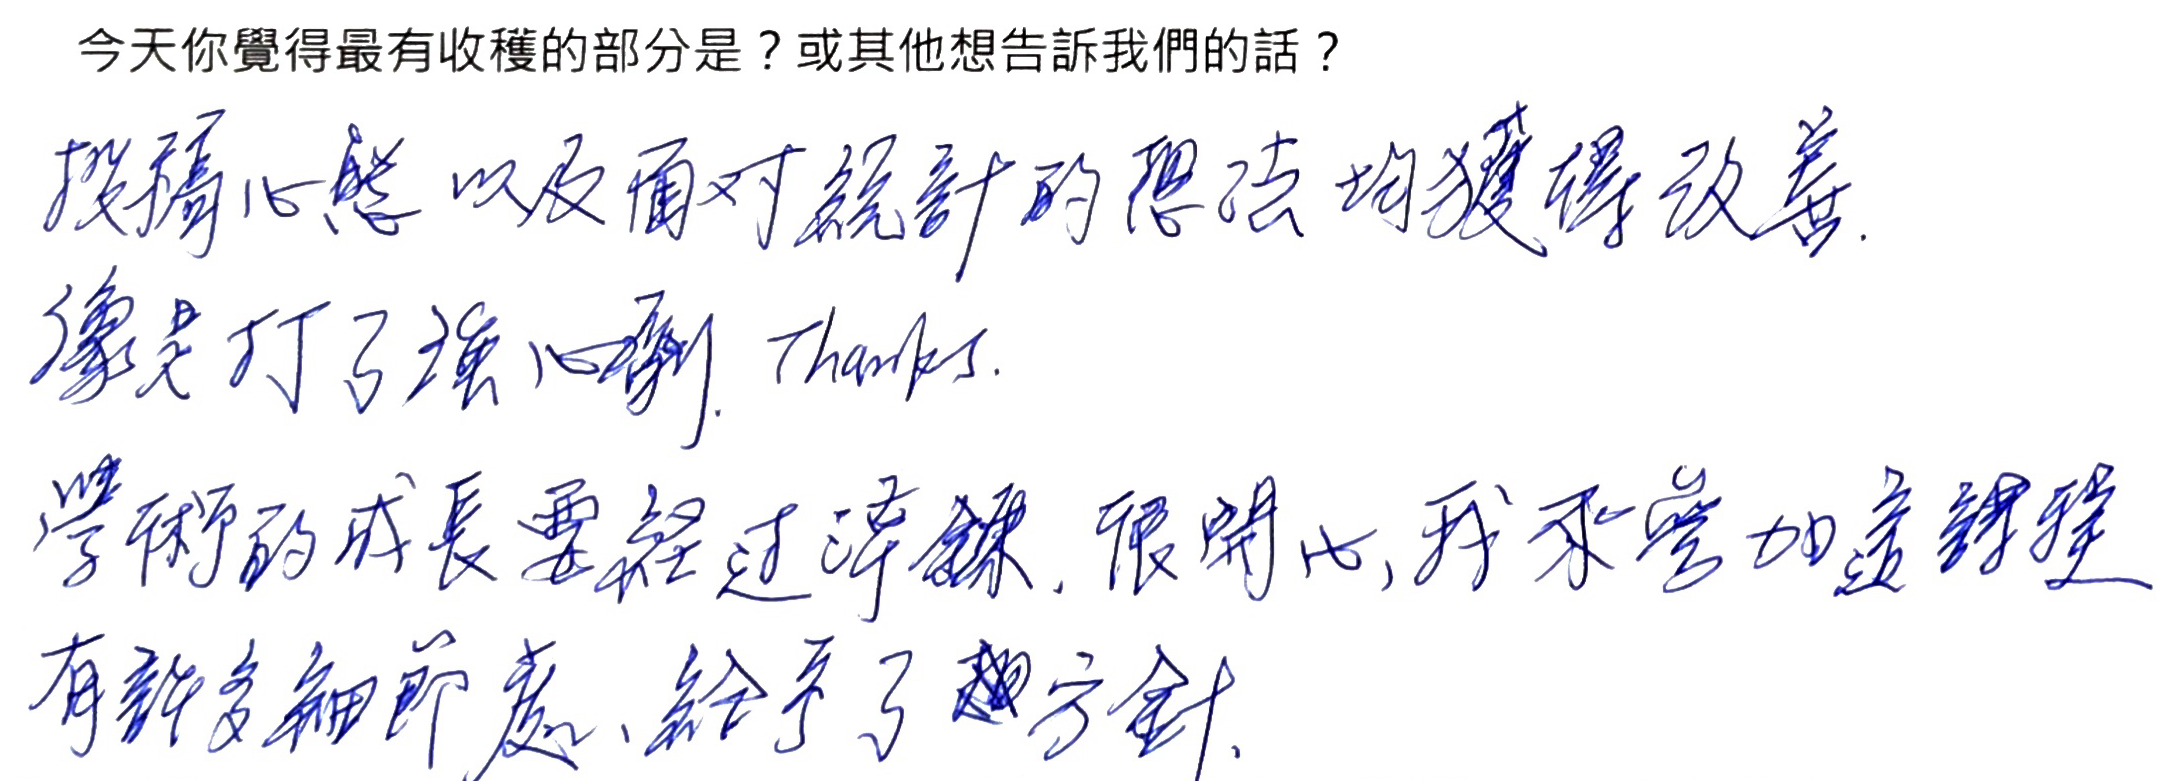 今天你覺得最有收穫的部分是？或其他想告訴我們的話？
投稿心態以及面对統計的想法均獲得改善.
像是打了強心劑. Thanks.
學術的成長要經过淬鍊.很開心,我來參加這課程
有許多細節處、給予了方針.